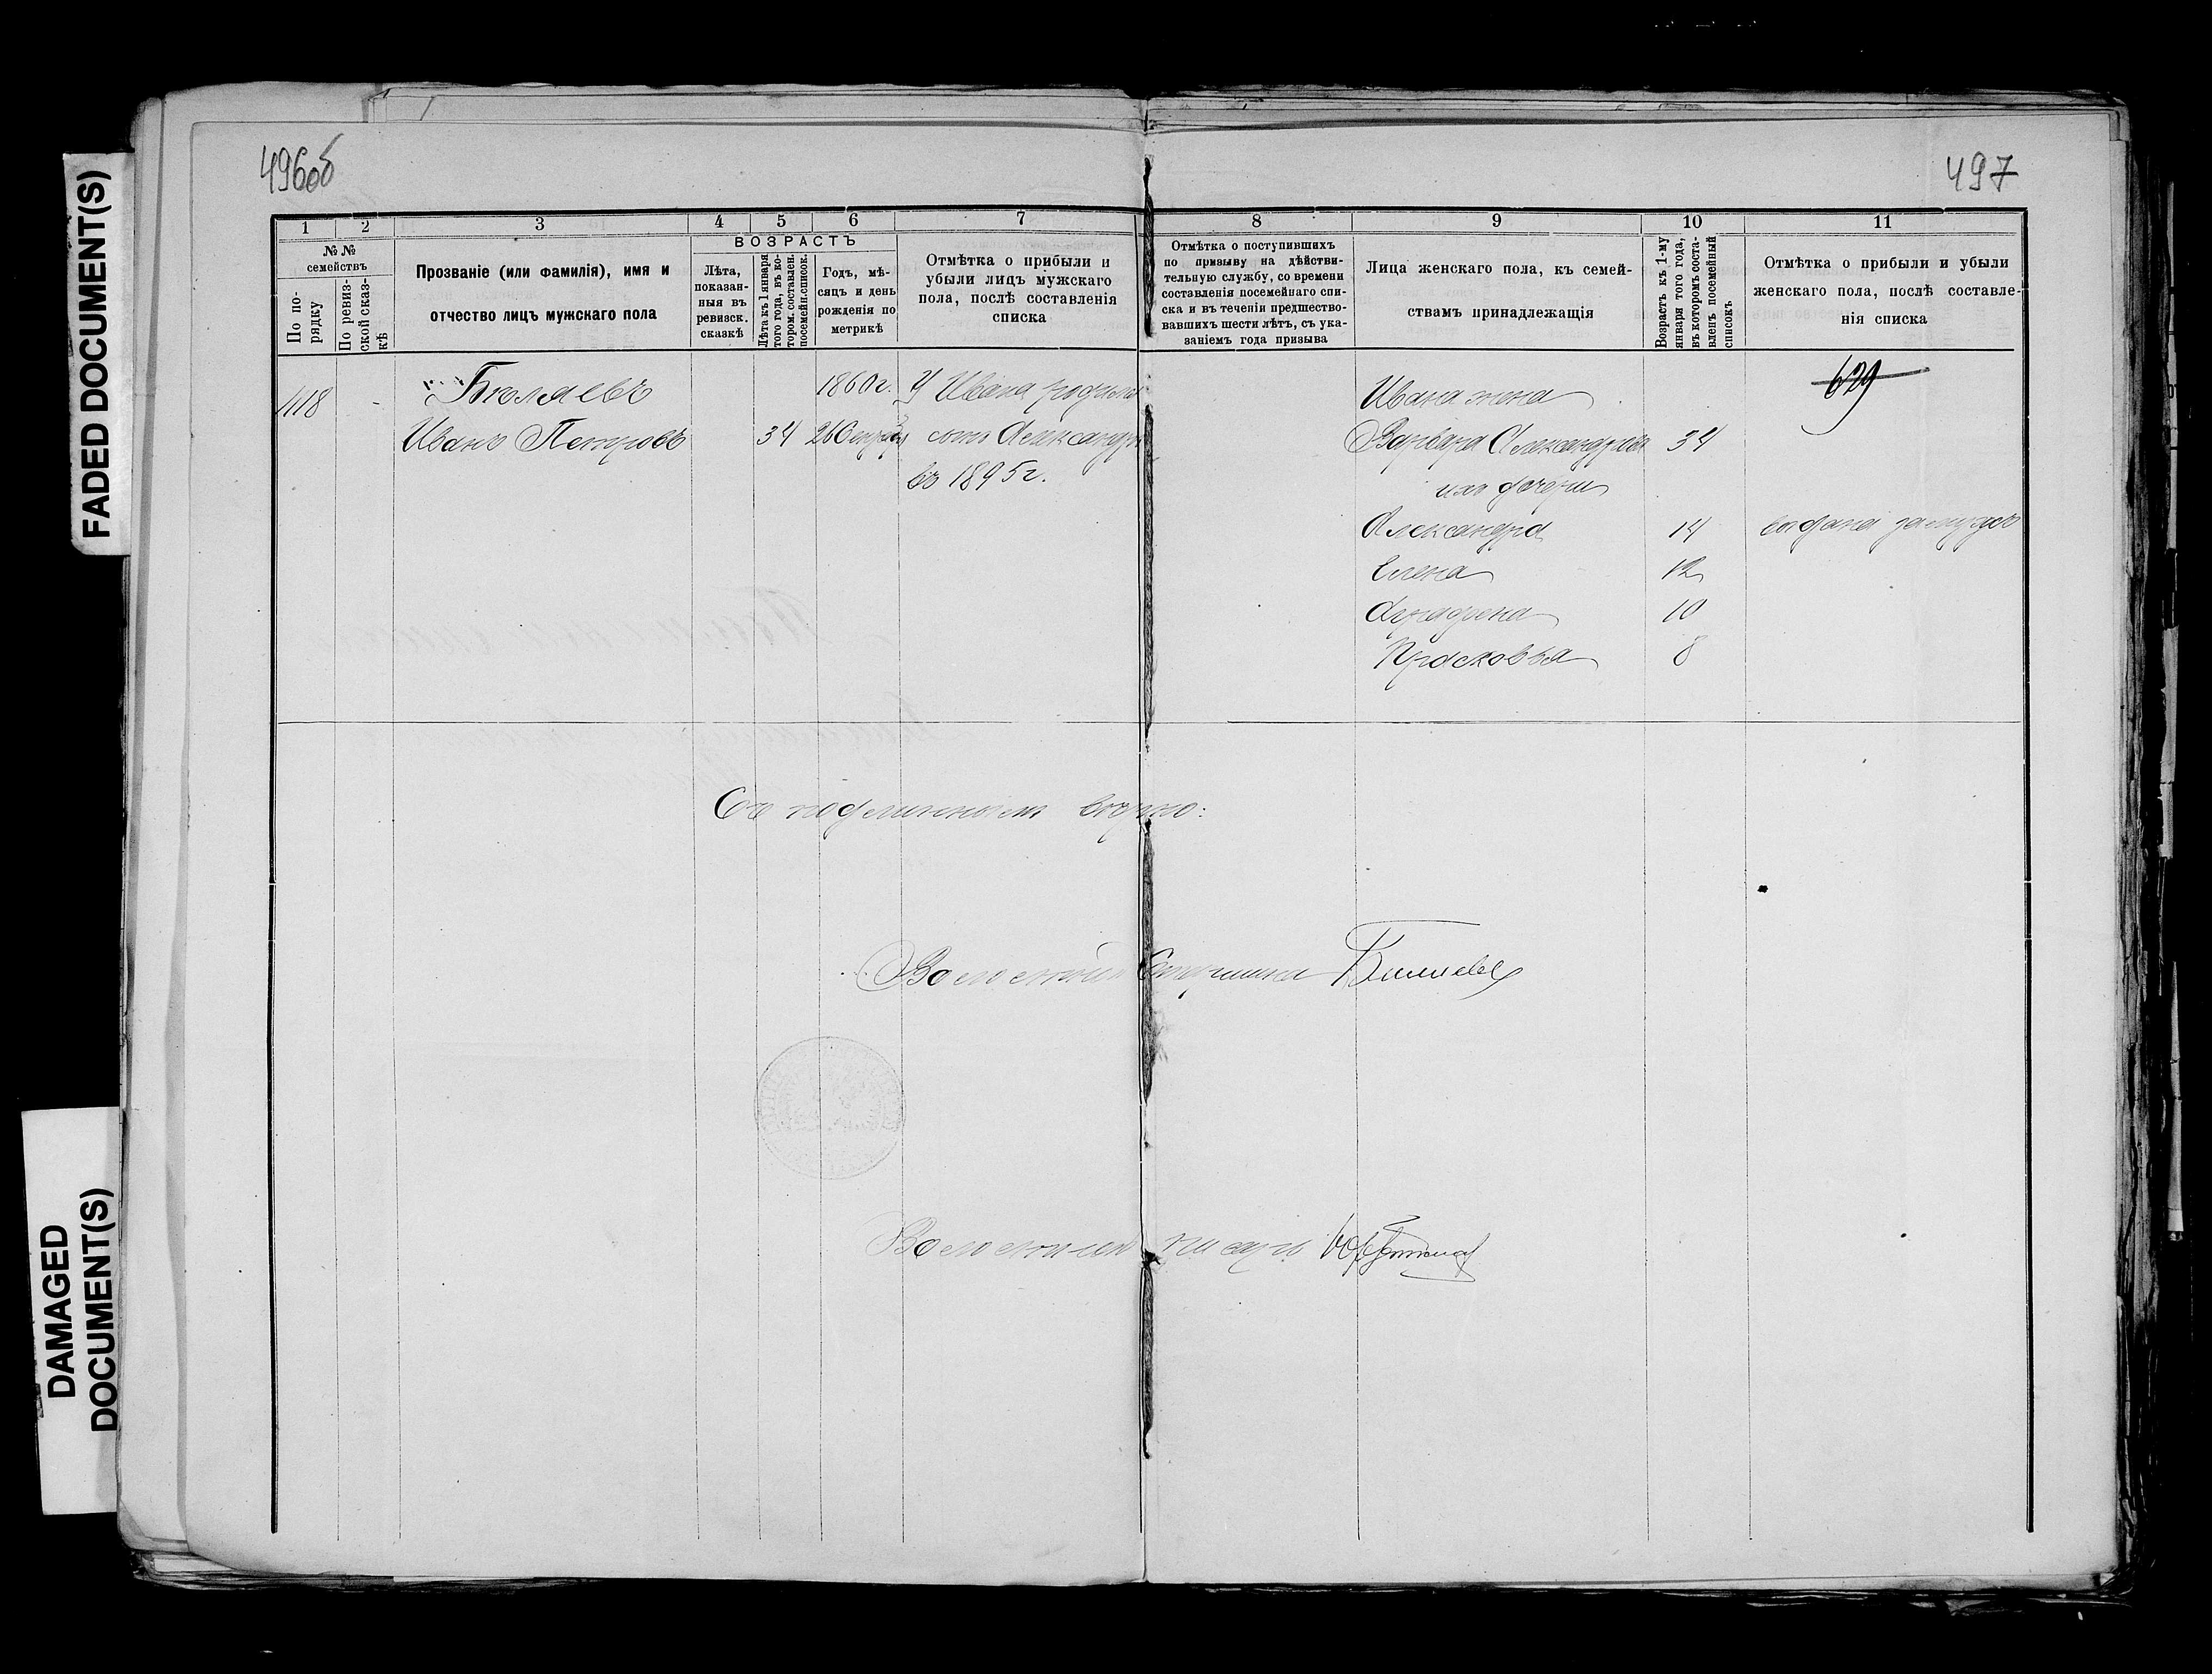 FADED DOCUMENT(S)
DAMAGED
DOCUMENT(S)
496об
497
1 2 3 4 5 6 7 8 9 10 11
№№
семействъ
По по-
рядку
По ревиз-
ской сказ-
кѣ
Прозваніе (или фамилія), имя и
отчество лицъ мужскаго пола
ВОЗРАСТЪ
Лѣта,
показан-
ныя въ
ревизск.
сказкѣ
Лѣта къ 1 января
того года, въ ко-
тором. составлен.
посемейн. список.
Годъ, мѣ-
сяцъ и день
рожденія по
метрикѣ
Отмѣтка о прибыли и
убыли лицъ мужскаго
пола, послѣ составленія
списка
Отмѣтка о поступившихъ
по призыву на дѣйстви-
тельную службу, со времени
составленія посемейнаго спи-
ска и въ теченіи предшество-
вавшихъ шести лѣтъ, съ ука-
заніемъ года призыва
Лица женскаго пола, къ семей-
ствамъ принадлежащія
Возрастъ къ 1-му
января того года,
въ которомъ соста-
вленъ посемейный
списокъ
Отмѣтка о прибыли и убыли
женскаго пола, послѣ составле-
нія списка
1118 - Бѣляевъ
Иванъ Петровъ 34
1860 г.
26
У Ивана родился
сынъ Александръ
въ 1895 г.
Ивана жена
Варвара Александрова 34
ихъ дочери
Александра 14 выдана замужъ
Елена 12
Аграфена 10
Прасковья 8
629
Съ подлиннымъ вѣрно:
Волостной Старшина
Волостной писарь